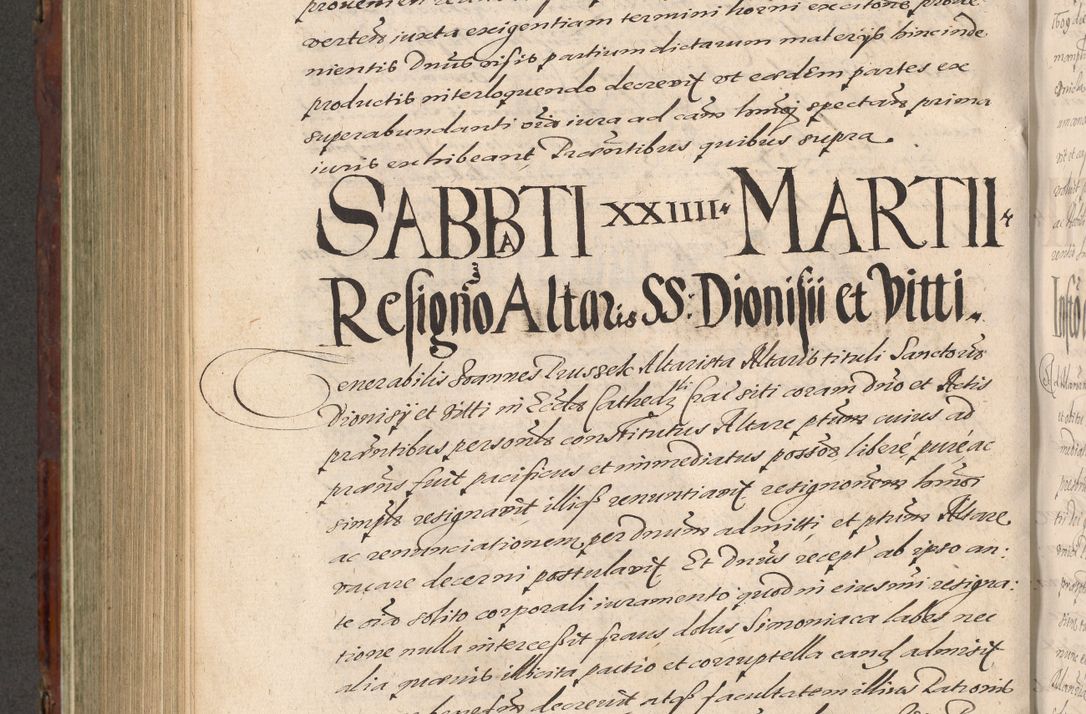 vertens iuxta exigentiam termini horni ex citone prove
nientis Dnus visis partium dictarum materijs hincinde
productis interloquendo decrevit ut eædem partes ex
superabundanti oia iura ad cam hmoi spectan prima
iuris exhibeant Præsentibus quibus supra.
SABBATI XXIIII MARTII
Resignõ Altaris SS: Dionisii et Vitti.
Venerabilis Joannes Prussek Altarista Altaris tituli Sanctorũ
Dionisij et Vitti in Eccla Cathedrli Crac siti coram dno et Actis
præntibus personlr constitutus Altare ptum cuius ad
præns fuit pacificus et immediatus possor liberé, puré ac
simplr resignavit illiqs renuntiavit resignonem hmoi
ac renunciationem per dnum admitti, et ptum Altare
vacare decerni postulavit Et Dnus recept ab ipso an:
te oio solito corporali iuramento quod in eiusmi resigna:
tione nulla intercessit fraus dolus Simoniaca labes nec
alia quævis illicita pactio et corruptella eand admisit
decrevit atqs facultatem illius Patronis